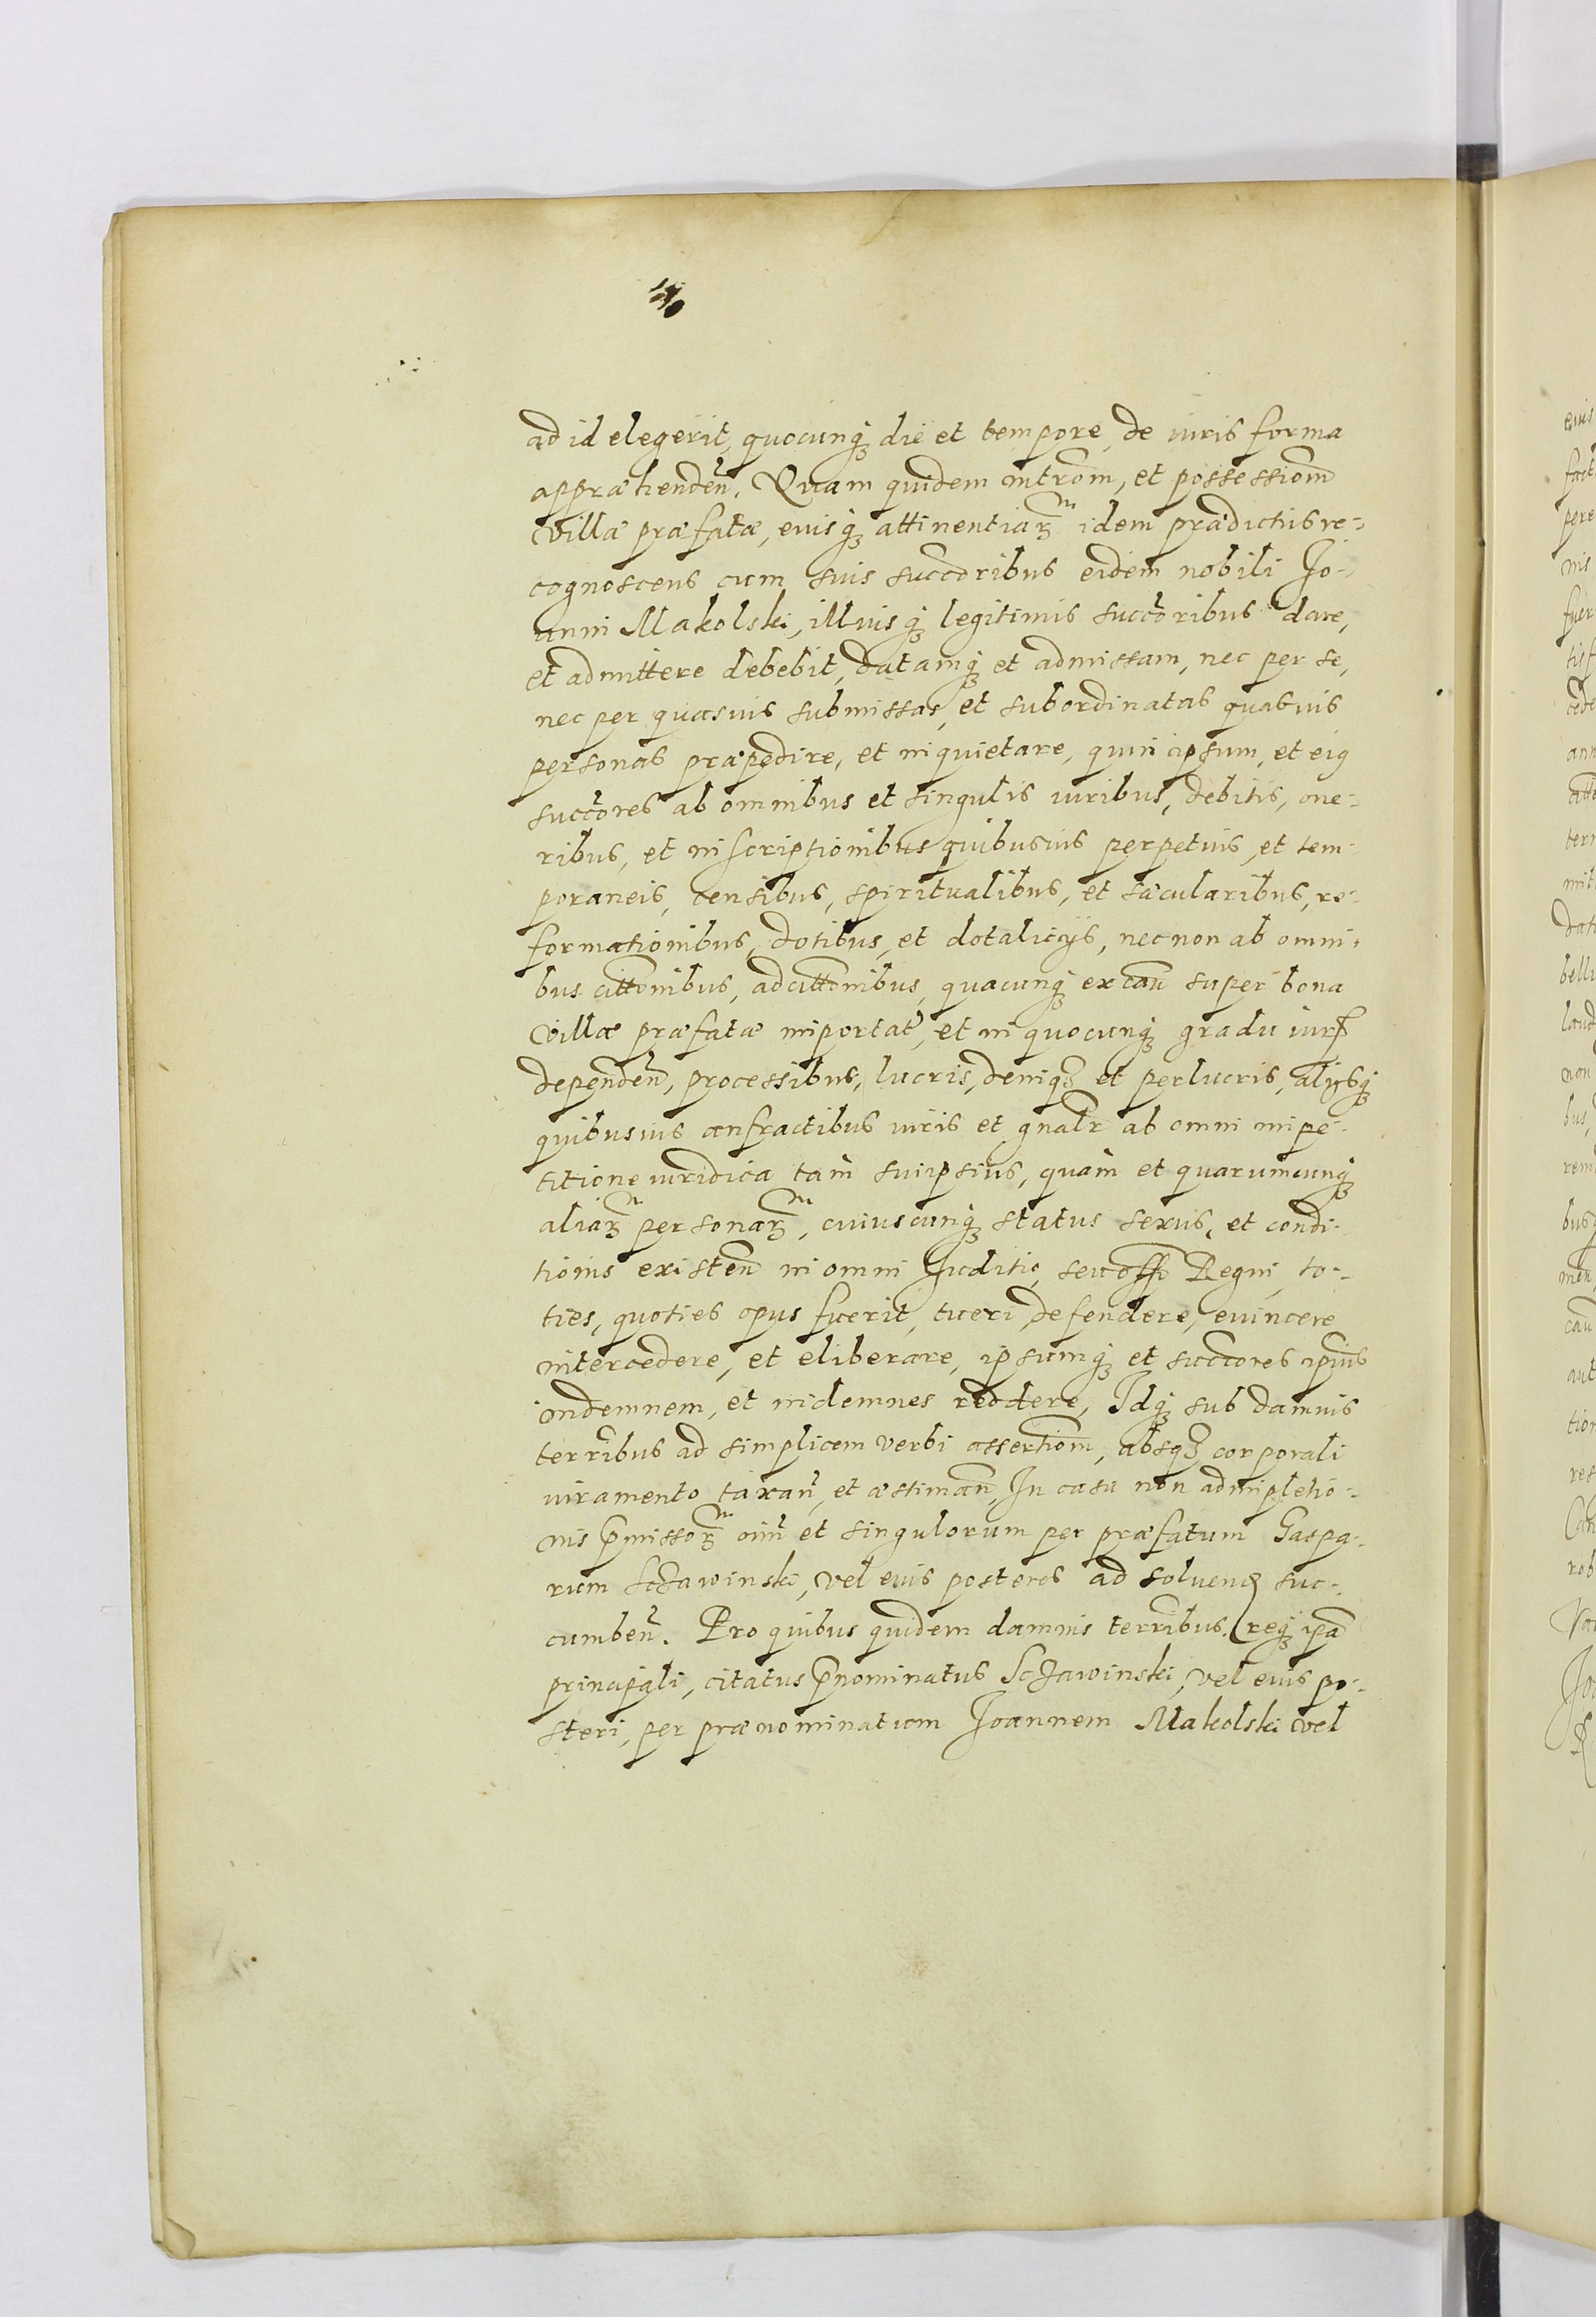 ad id elegerit, quocunqꝫ die et tempore, de iuris forma
appræhendeñ. Quam quidem intrōm, et possessiom̄
Villæ præfatæ, eiusqꝫ attinentiarꝫ idem prædictus re-
cognoscens cum suis succōribus eidem nobili Jo-
anni Makolski, illius qꝫ legitimis succōribus dare,
et admittere debebit, datamqꝫ et admissam, nec per se,
nec per quasuis submissas, et subordinatas quasuis
personas præpedire, et inquietare, quin ipsum, et eiꝰ
succōres ab omnibus et singulis iuribus, debitis, one-
ribus, et inscriptionibus quibusuis perpetuis, et tem-
poraneis, censibus, spiritualibus, et sæcularibus, re-
formationibus, dotibus, et dotalicijs, nec non ab omni-
bus citt̄onibus, adcitt̄onibus, quacunqꝫ ex cau͞ super bona
Villæ præfatæ importat̄, et in quocunqꝫ gradu iurꝭ
dependeñ, processibus, lucris, deniqꝫ et perlucris, alijsqꝫ
quibusuis anfractibus iuris et gnalr̄ ab omni impe-
titione iuridica tam suiipsius, quam et quarumcunqꝫ
aliarꝫ personarꝫ, cuiuscunqꝫ status sexus, et condi-
tionis existeñ in omni Juditio, seu off̄o Regni, to-
ties, quoties opus fuerit, tueri, defendere, euincere
intercedere, et eliberare, ipsumqꝫ et succōres ipīus
indemnem, et indemnes reddere, Idqꝫ sub damnis
terr̄ibus ad simplicem verbi assertiom̄, absqꝫ corporali
iuramento taxañ, et æstimañ, In casu non adimpletio-
nis p̄missorꝫ oīm̄ et singulorum per præfatum Gaspa-
rum Sczawinski, vel eius posteros ad soluenꝺ suc-
cumbeñ. Pro quibus quidem damnis terr̄ibus, (reqꝫ ip̄a
principali, citatus p̄nominatus Sczawinski, vel eius po-
steri, per prænominatum Joannem Makolski vel